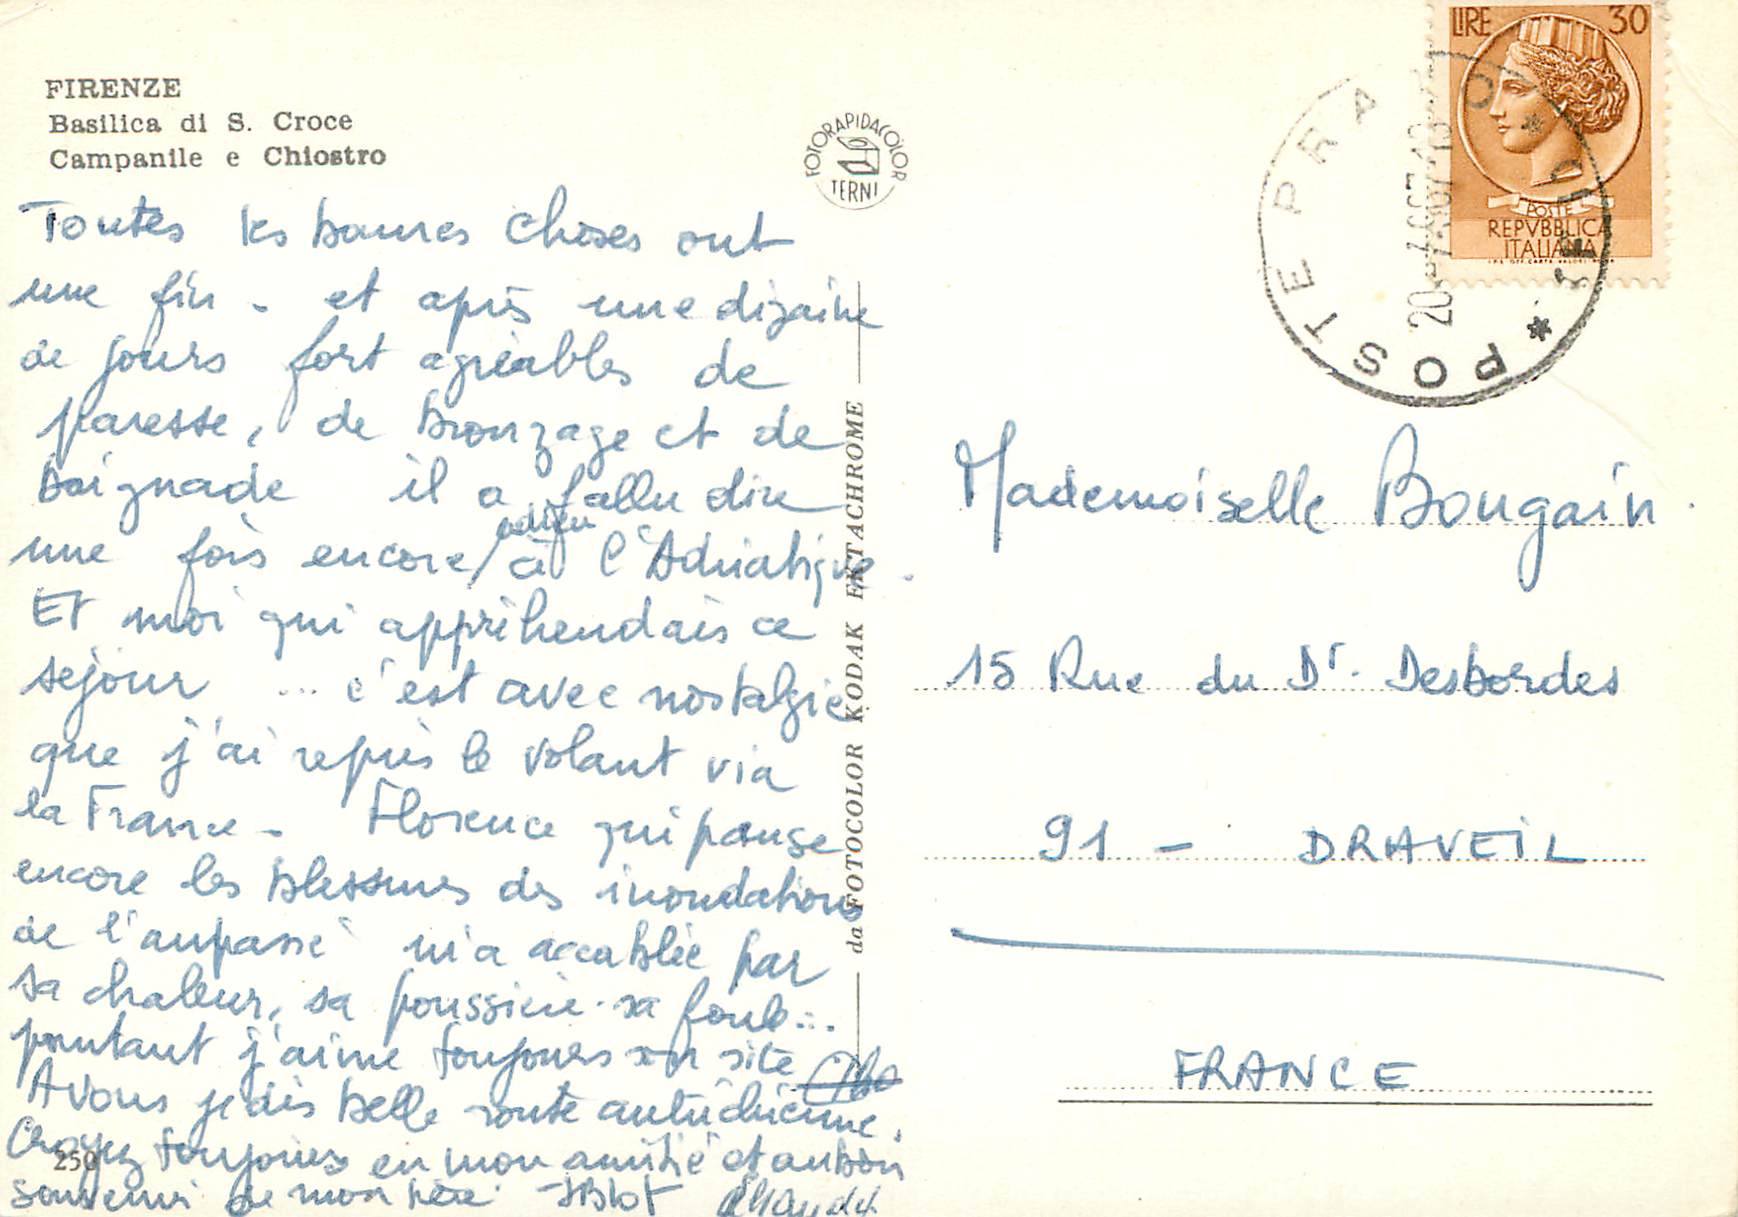 FIRENZE
Basilica di S. Croce
Campanile e Chiostro
Toutes les bonnes choses ont
une fin - et après une dizaine
de jours fort agréables de
paresse, de bronzage et de
baignade il a fallu dire
adieu
une fois encore / à l'Adriatique.
Et moi qui appréhendais ce
séjour ... c'est avec nostalgie
que j'ai repris le volant via
la France - Florence qui panse
encore les blessures des inondations
de l'an passé m'a accablée par
sa chaleur, sa poussière sa foule...
pourtant j'aime toujours son site
A vous je dis belle route autrichienne.
Croyez toujours en mon amitié et au bon
souvenir de mon père
250
FOTORAPIDACOLOR
TERNI
da FOTOCOLOR KODAK EKTACHROME
LIRE 30
POSTE
REPVBBLICA
ITALIANA
POSTE PRATO
Mademoiselle Bougain
15 Rue du Dr. Desbordes
91 - DRAVEIL
FRANCE